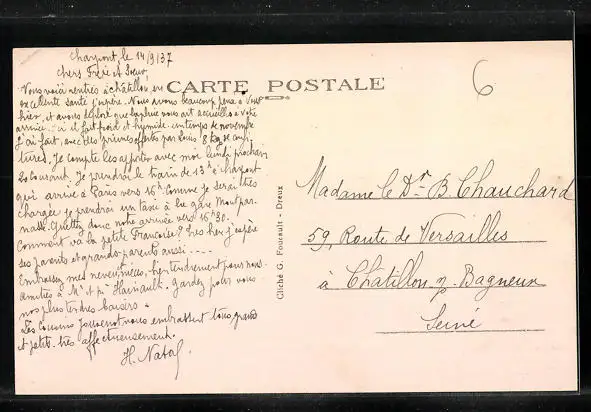 Charpont, le 14/9/37
Chers Frère et Soeur,
Vous voici rentrés à Châtillon, en
excellente santé j'espère. Nous avons beaucoup pensé à vous
hier, et avons déploré que la pluie vous ait accueillis à votre
arrivée. Ici il fait froid et humide. un temps de novembre
J'ai fait, avec des prunes offertes par Louis 8 kgs de confi-
tures. Je compte les apporter avec moi lundi prochain
20 courant. Je prendrai le train de 13h à Charpont
qui arrive à Paris vers 16h. Comme je serai très
chargée je prendrai un taxi à la gare Montpar-
nasse. Guettez donc notre arrivée vers 16h30.
Comment va la petite Françoise? Très bien j'espère
ses parents et grands-parents aussi
Embrassez mes neveux, nièces, bien tendrement pour nous.
amitiés à Mr et Me Hainault. gardez pour vous
nos plus tendres baisers.
Les Cousins vous embrassent tous, grands
et petits très affectueusement.
H.
CARTE POSTALE
6
Cliché G. Foucault - Dreux
Madame le Dr B. Chauchard
59, Route de Versailles
à Châtillon s/ Bagneux
Seine